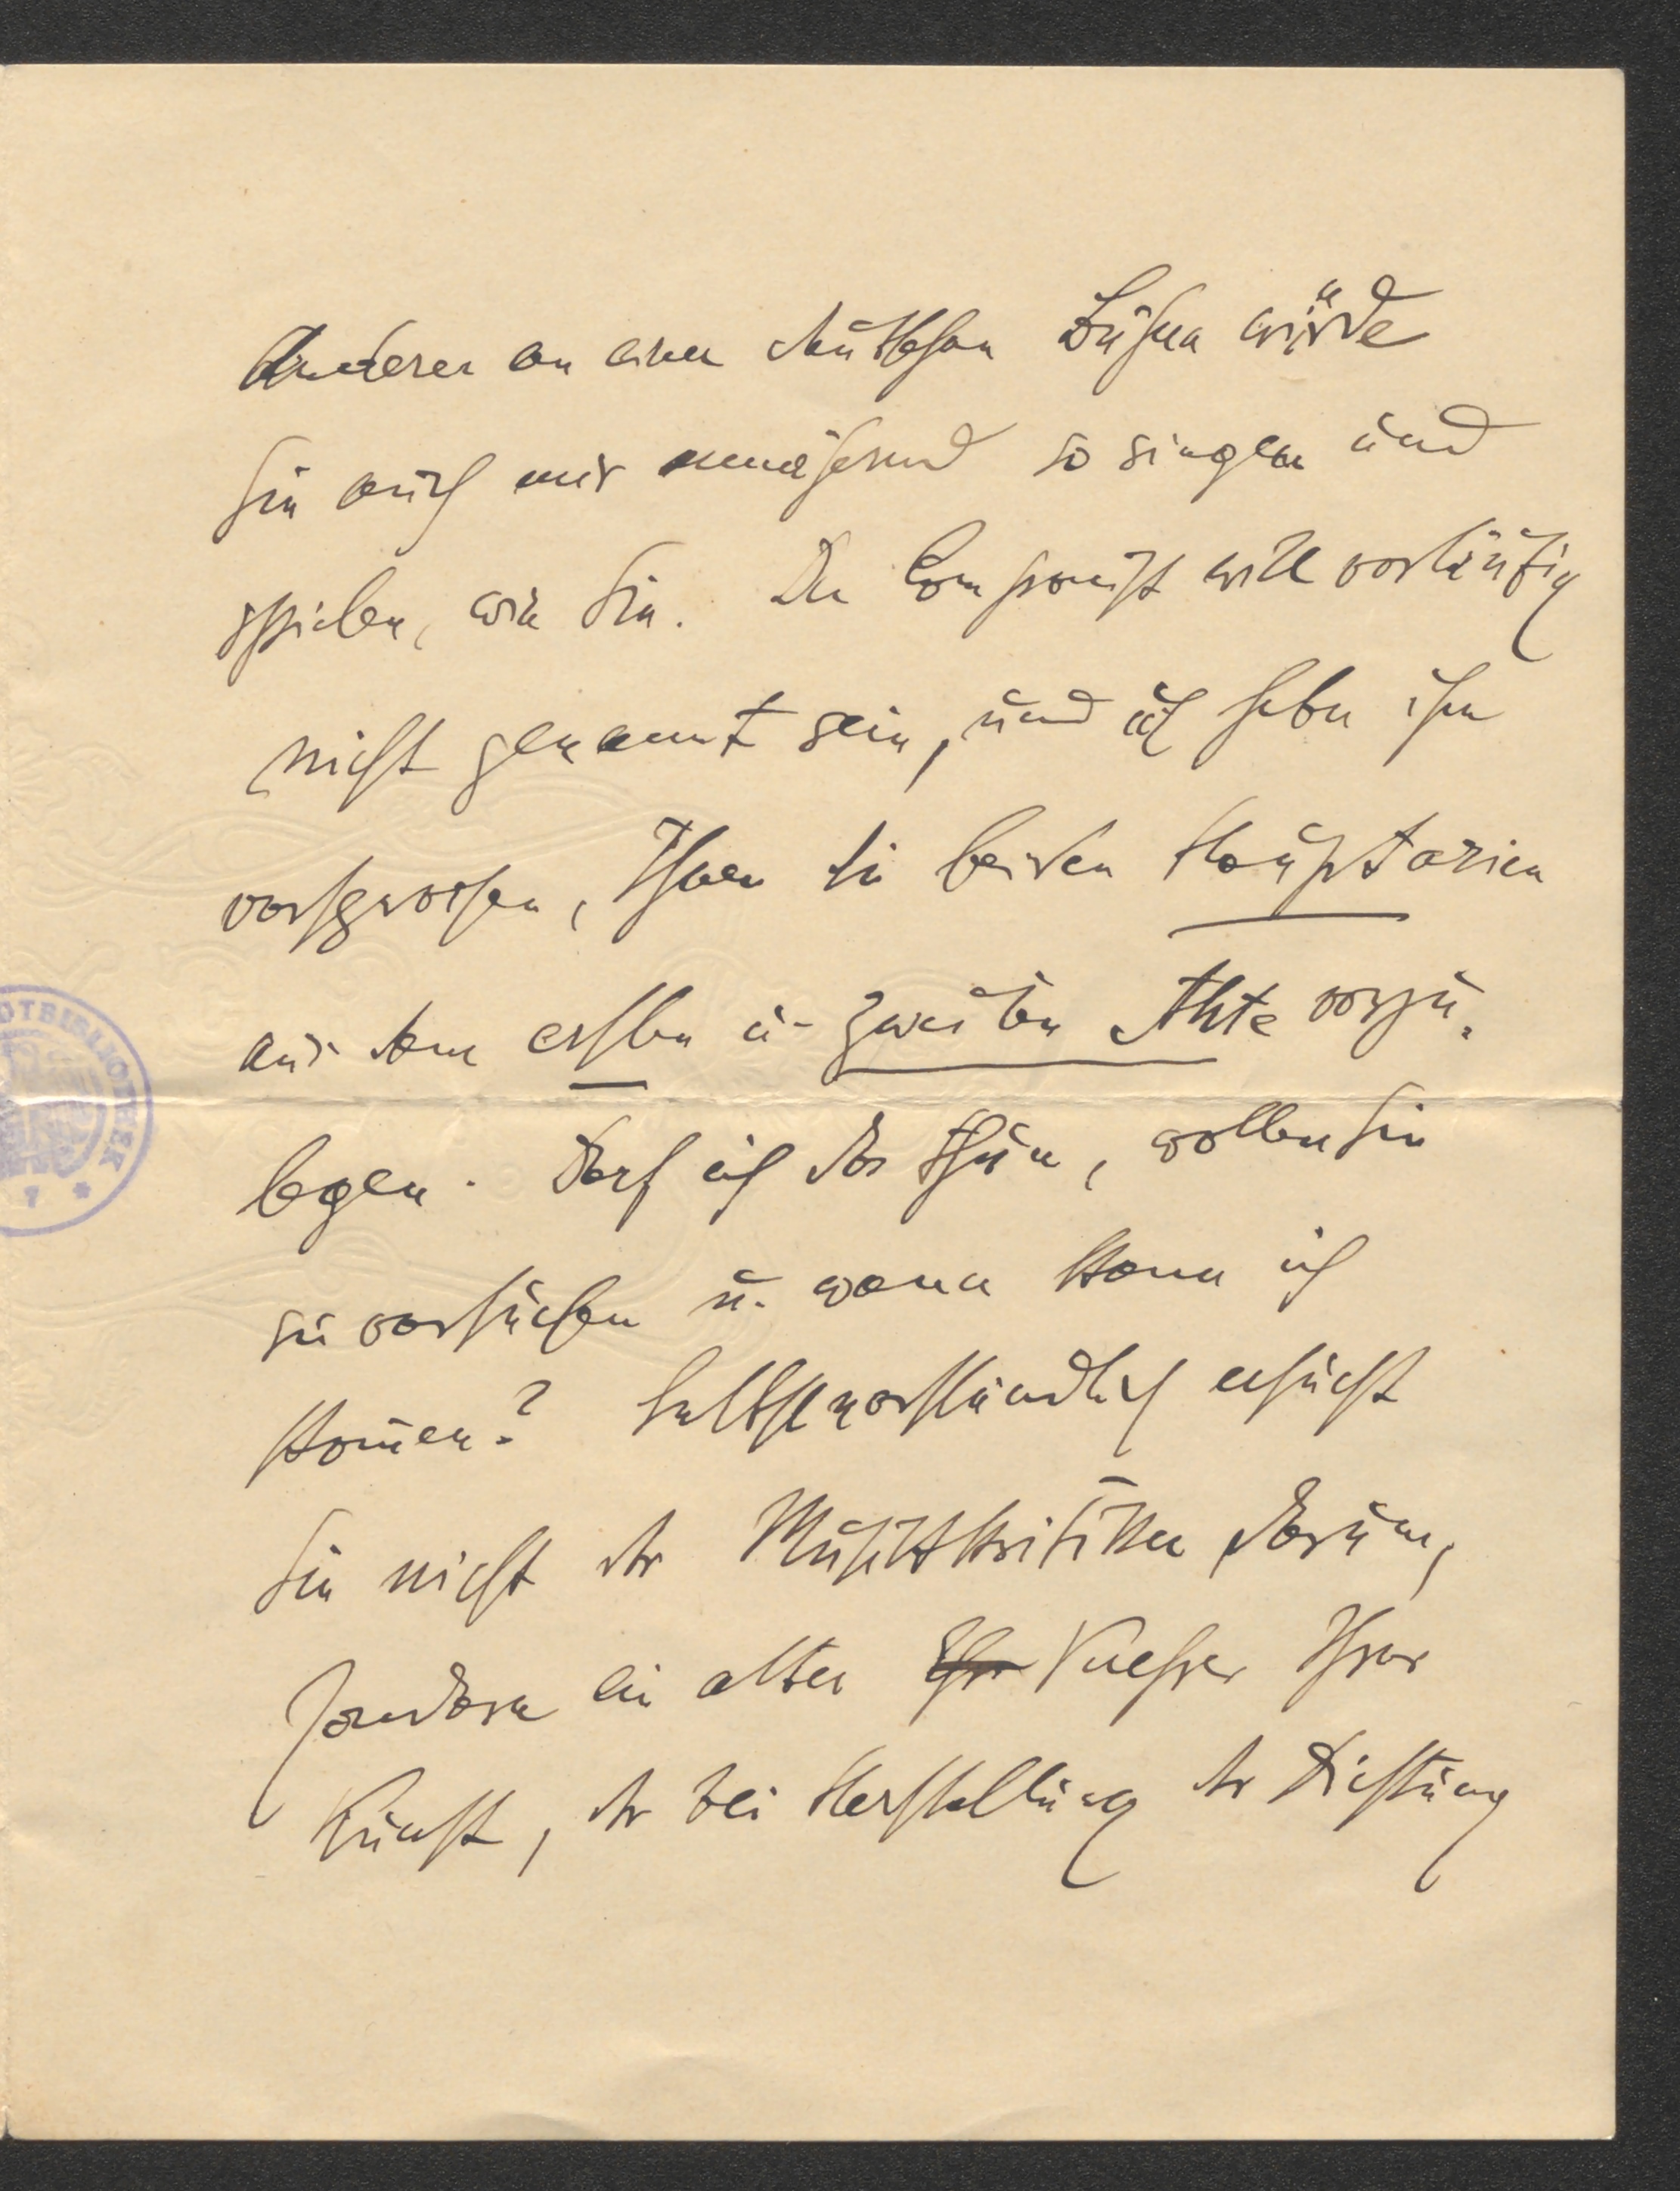 Anderer an einer deutschen Bühne würde
sie auch nur annähernd so singen und
spielen, wie Sie. Der Componist will vorläufig
nicht genannt sein, und ich habe ihm
versprochen, Ihnen die beiden Hauptarien
aus dem ersten u. zweiten Akte vorzu-
legen. Darf ich das thun, wollen Sie
sie versuchen u. wann kann ich
kom̄en? Selbstverständlich ersucht
Sie nicht der Musikkritiker darum,
sondern ein alter Verehrer Ihrer
Kunst, der bei Herstellung der Dichtung
OTBIBLIOTHEK